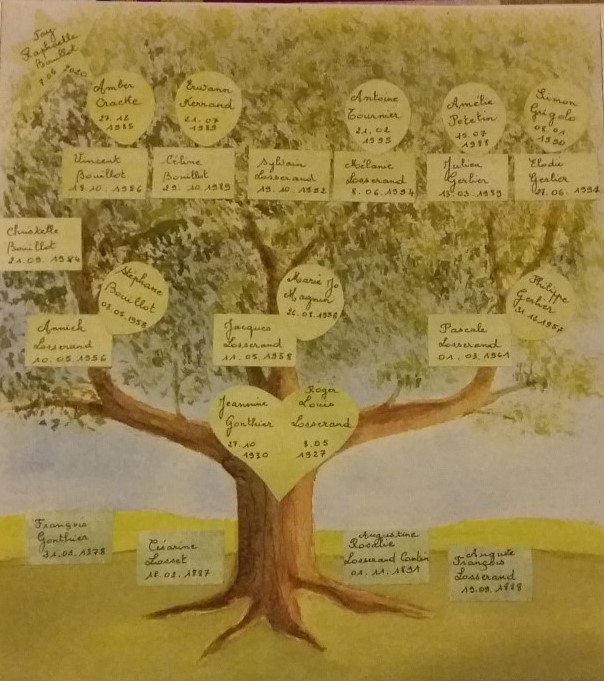 Fay
Raphaëlle
Bouillot
7.06.2020
Amber
Cracke
27.12
1985
Erwann
Kerrand
21.07
1989
Antoine
Tournier
21.02
1995
Amélie
Petetin
15.07
1988
Simon
Grigolo
08.01
1990
Vincent
Bouillot
18.10.1986
Céline
Bouillot
29.10.1989
Sylvain
Losserand
19.10.1992
Mélanie
Losserand
8.06.1994
Julien
Gerlier
13.03.1989
Elodie
Gerlier
27.06.1991
Christelle
Bouillot
21.09.1984
Stéphane
Bouillot
02.05.1959
Marie Jo
Magnin
26.08.1958
Philippe
Gerlier
31.12.1957
Annick
Losserand
10.05.1956
Jacques
Losserand
11.05.1958
Pascale
Losserand
01.03.1961
Jeannine
Gonthier
27.10
1930
Roger
Louis
Losserand
8.05
1927
François
Gonthier
31.01.1878
Césarine
Losset
18.02.1887
Augustine
Rosalie
Losserand Contin
01.11.1891
Auguste
François
Losserand
19.09.1888